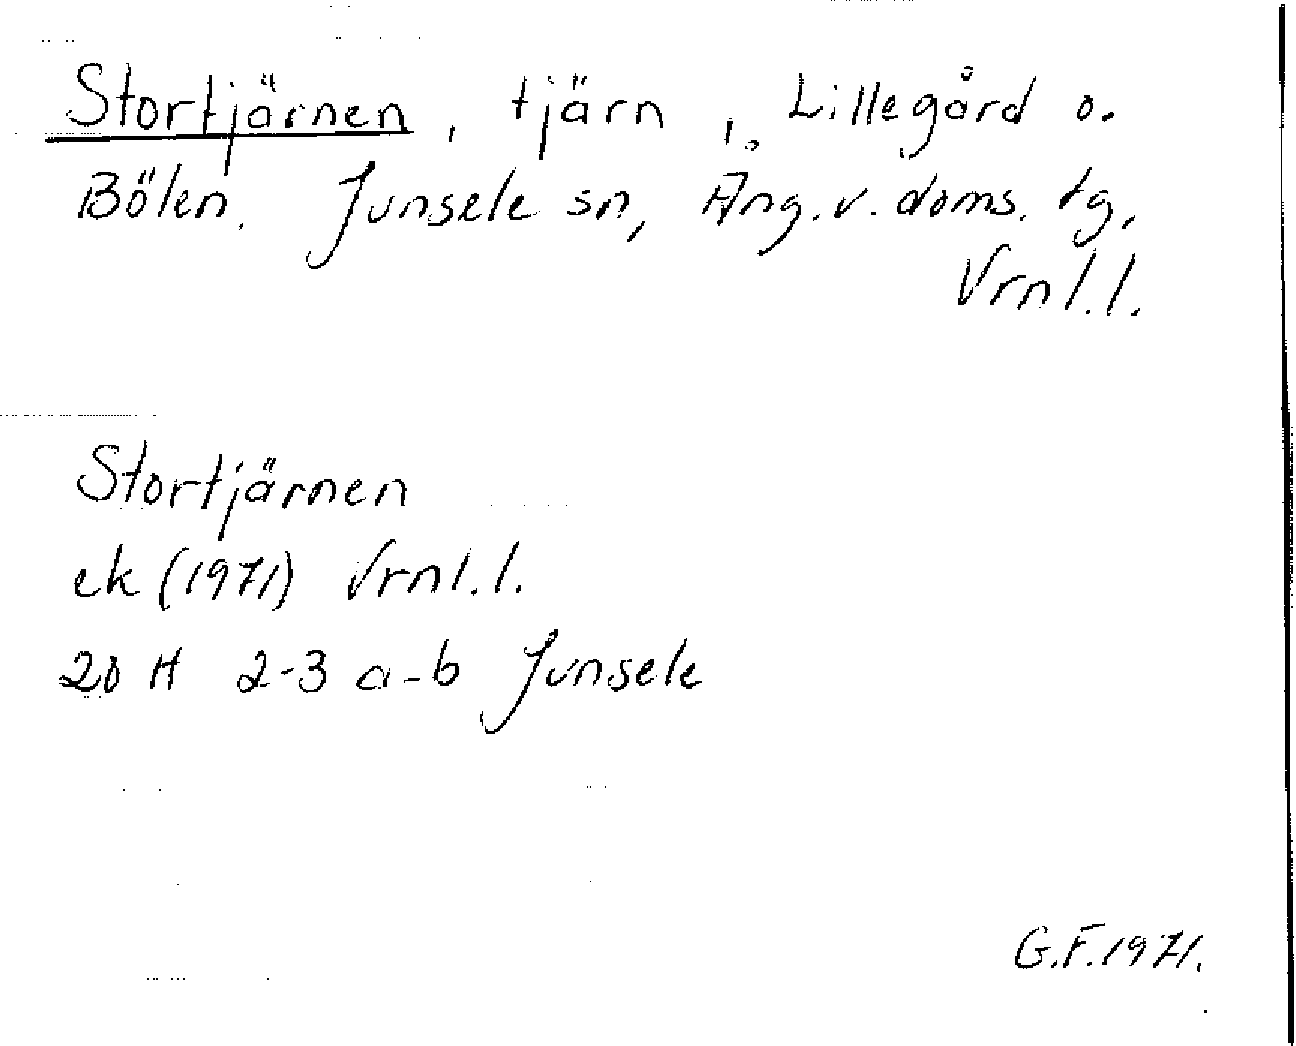 Stortjärnen, tjärn, Lillegård o.
Bölen. Junsele sn, Ång. v. doms. tg,
Vrnl.l.
Stortjärnen
ek (1971) Vrnl.l.
20 H 2-3 a-b Junsele
G.F. 1971.